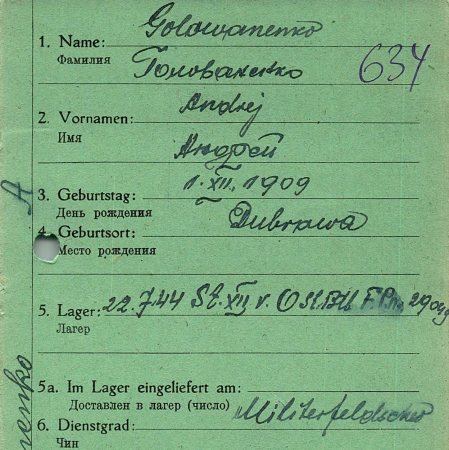 Golowanenko
1. Name:
Фамилия Голованенко
634
Andrej
2. Vornamen:
Имя Андрей
1. XII. 1909
3. Geburtstag:
День рождения
Dubrawa
4. Geburtsort:
Место рождения
5. Lager: 22.7.44 St. XII v. Ost. 29049
Лагерь
5a. Im Lager eingeliefert am:
Доставлен в лагерь (число)
6. Dienstgrad: Militerfeldscher
Чин
A
nenko